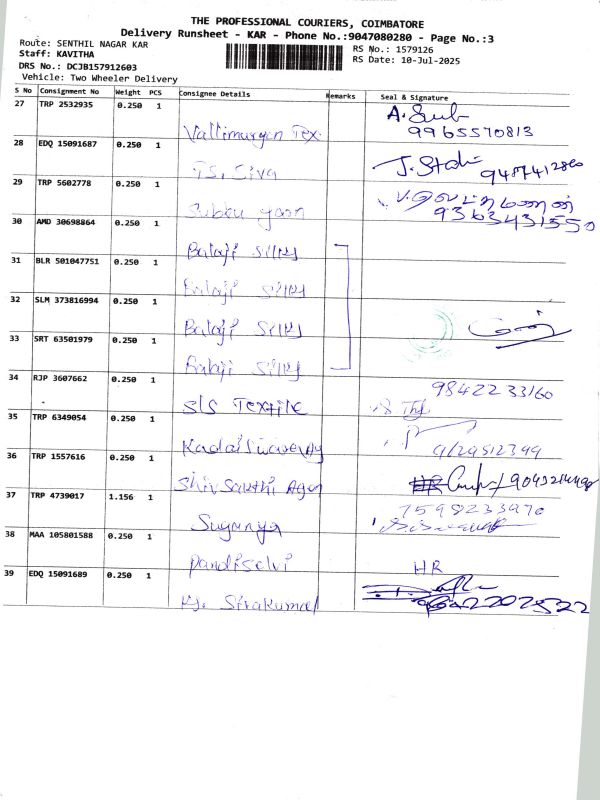 THE PROFESSIONAL COURIERS, COIMBATORE
Delivery Runsheet - KAR - Phone No.:9047080280 - Page No.:3
Route: SENTHIL NAGAR KAR
RS No.: 1579126
Staff: KAVITHA
RS Date: 10-Jul-2025
DRS No.: DCJB157912603
Vehicle: Two Wheeler Delivery
S No Consignment No Weight PCS Consignee Details Remarks Seal & Signature
27 TRP 2532935 0.250 1
Vallimurgan Tex. 9965570813
28 EDQ 15091687 0.250 1
TS. Siva
29 TRP 5602778 0.250 1
Subbu yaan 9363431550
30 AMD 30698864 0.250 1
Balaji silks
31 BLR 501047751 0.250 1
Balaji silks
32 SLM 373816994 0.250 1
Balaji silks
33 SRT 63501979 0.250 1
Balaji silks
34 RJP 3607662 0.250 1 9842233160
SLS Textile
35 TRP 6349054 0.250 1
36 TRP 1557616 0.250 1
37 TRP 4739017 1.156 1 7598233970
Suganya
38 MAA 105801588 0.250 1
Pandiselvi HR
39 EDQ 15091689 0.250 1